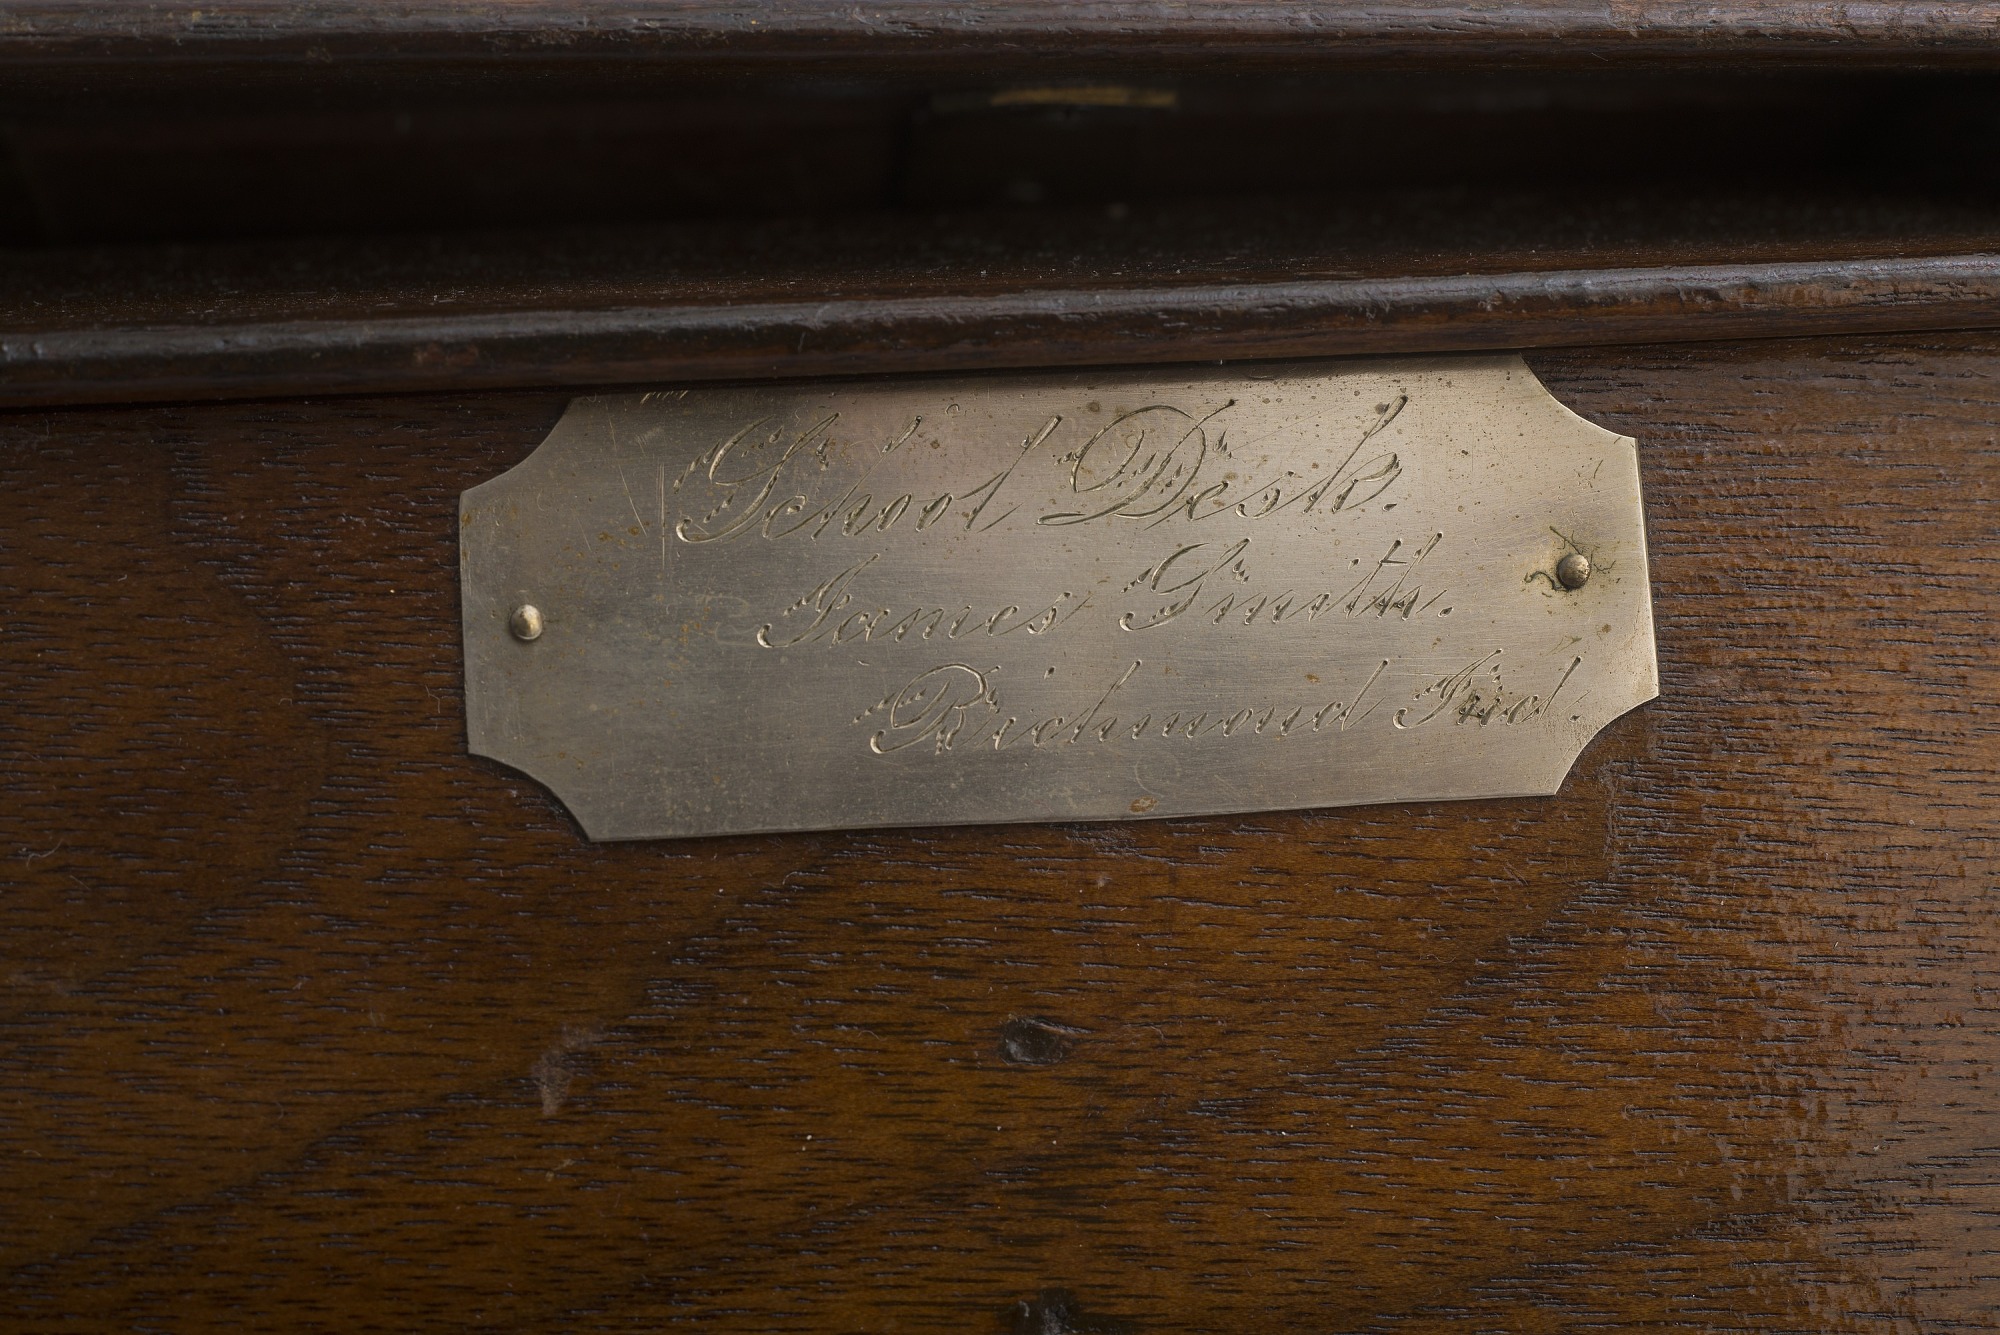 School Desk.
James Smith.
Richmond Ind.